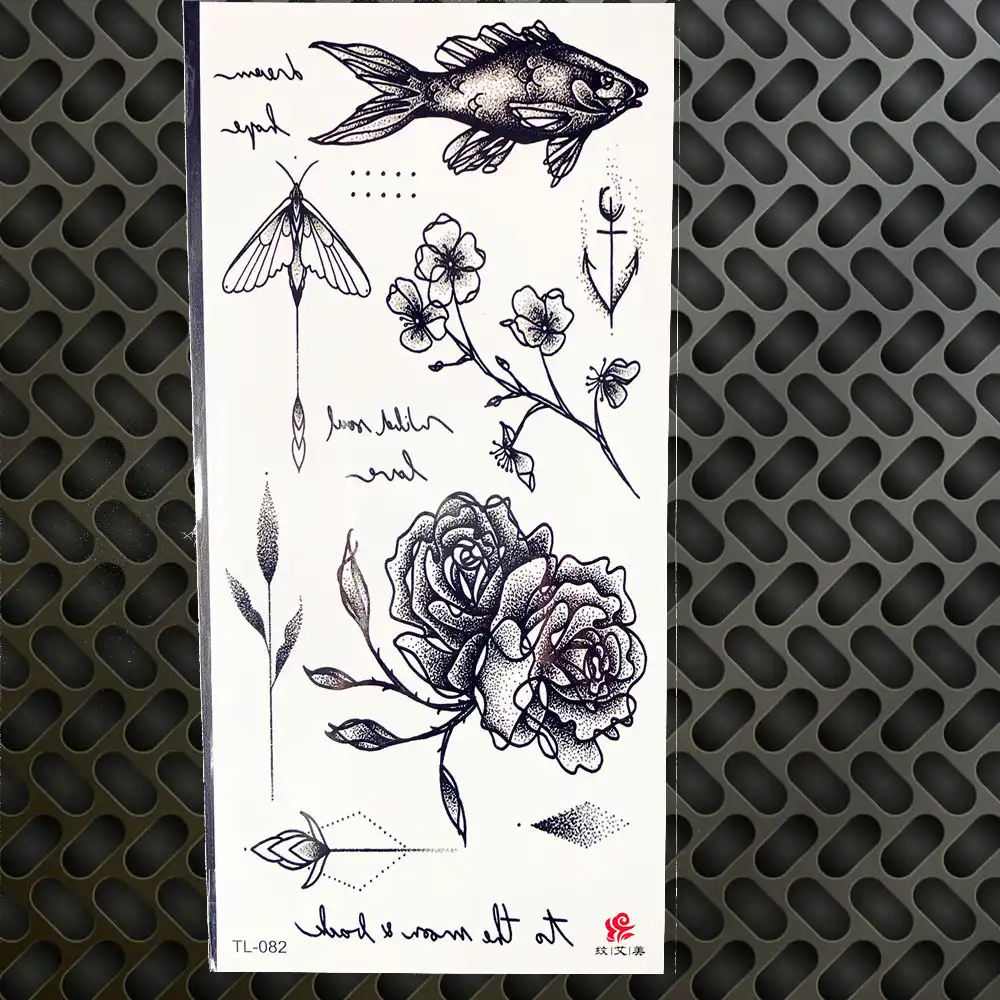 dream
hope
wild soul
love
to the moon & back
TL-082
纹|艾|美